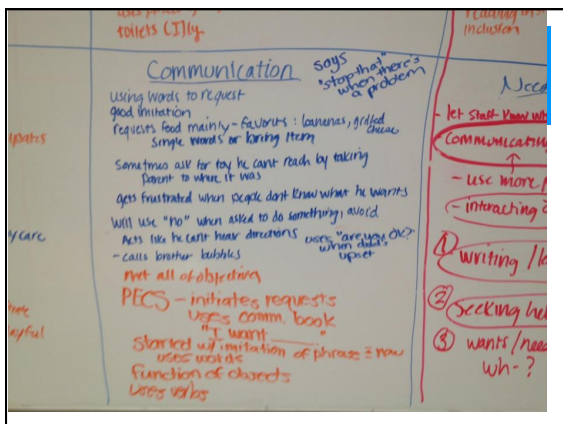 toilets (I)ly
reading
inclusion
Communication
says
"stop that"
when there's
a problem
using words to request
good imitation
requests food mainly - favorits: bananas, grilled cheese
single words or bring item
Sometimes ask for toy he cant reach by taking
parent to where it was
gets frustrated when people dont know what he wants
Will use "no" when asked to do something, avoid
Acts like he cant hear directions
uses "are you OK?"
when dad's
upset
- calls brother bubbles
met all of objective
PECS - initiates requests
uses comm. book
"I want ____"
Started w/ imitation of phrase = now
uses words
function of objects
uses verbs
- let staff know
Communicating
- use more
- interacting
① writing /
② seeking
③ wants/need
wh- ?